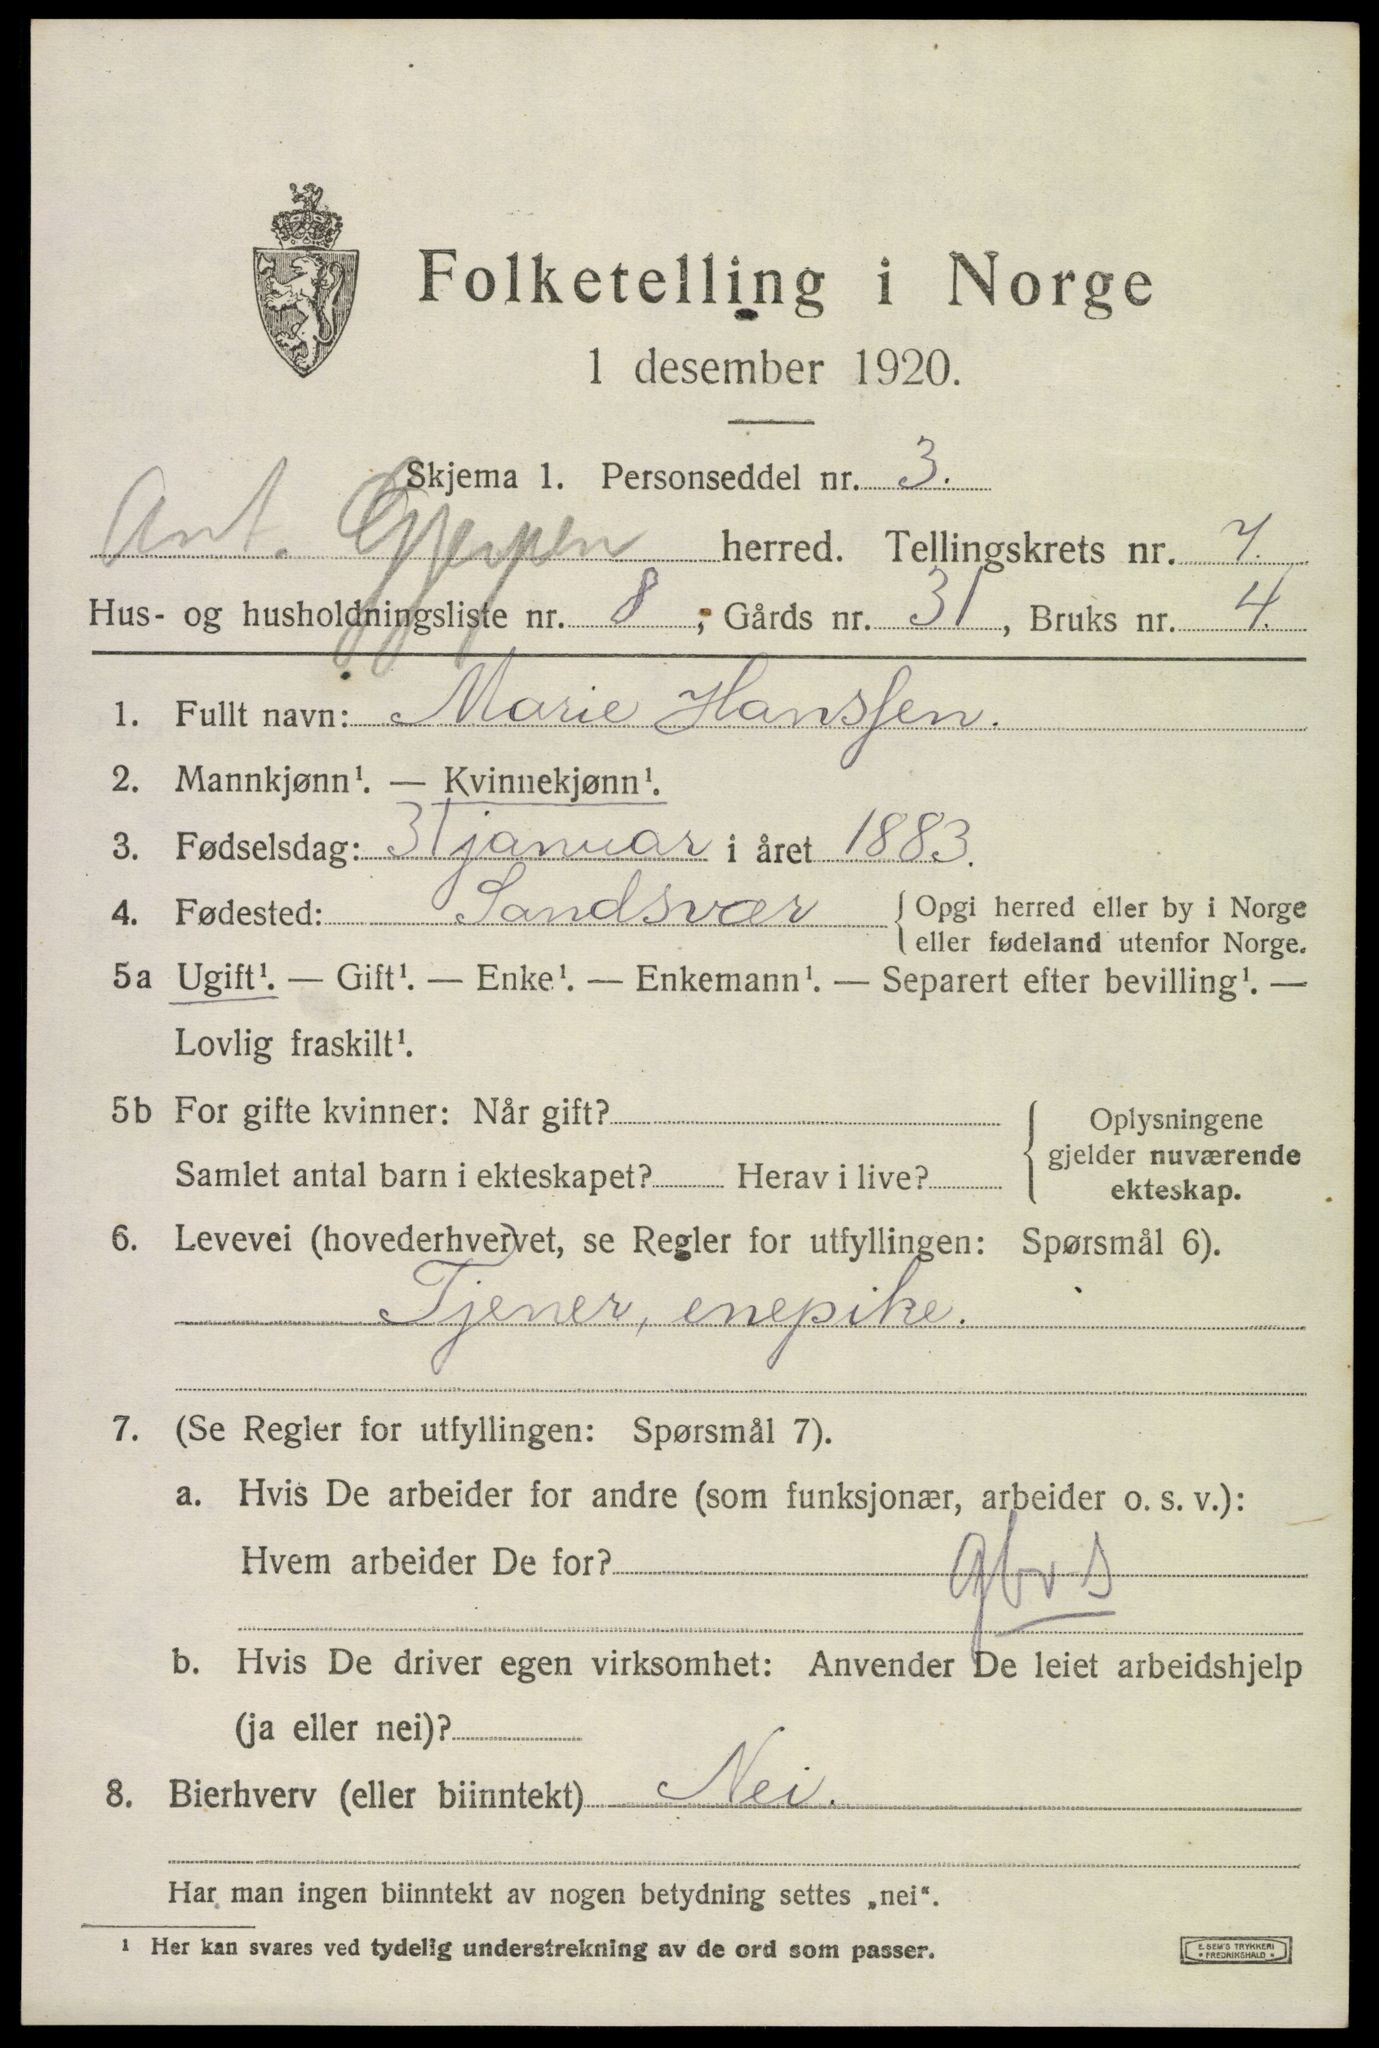 Folketelling i Norge
1 desember 1920.
Skjema 1. Personseddel nr. 3.
Ant. Gjerpen herred. Tellingskrets nr. 7.
Hus- og husholdningsliste nr. 8 ; Gårds nr. 31 , Bruks nr. 4.
1. Fullt navn: Marie Hanssen.
2. Mannkjønn¹. — Kvinnekjønn¹.
3. Fødselsdag: 31 januar i året 1883.
4. Fødested: Sandsvær { Opgi herred eller by i Norge
eller fødeland utenfor Norge.
5a Ugift¹. — Gift¹. — Enke¹. — Enkemann¹. — Separert efter bevilling¹. —
Lovlig fraskilt¹.
5b For gifte kvinner: Når gift? { Oplysningene
gjelder nuværende
Samlet antal barn i ekteskapet? Herav i live? ekteskap.
6. Levevei (hovederhvervet, se Regler for utfyllingen: Spørsmål 6).
Tjener, enepike.
7. (Se Regler for utfyllingen: Spørsmål 7).
a. Hvis De arbeider for andre (som funksjonær, arbeider o. s. v.):
Hvem arbeider De for? gbr s
b. Hvis De driver egen virksomhet: Anvender De leiet arbeidshjelp
(ja eller nei)?
8. Bierhverv (eller biinntekt) Nei.
Har man ingen biinntekt av nogen betydning settes „nei“.
¹ Her kan svares ved tydelig understrekning av de ord som passer.
E. SEM'S TRYKKERI
* FREDRIKSHALD *